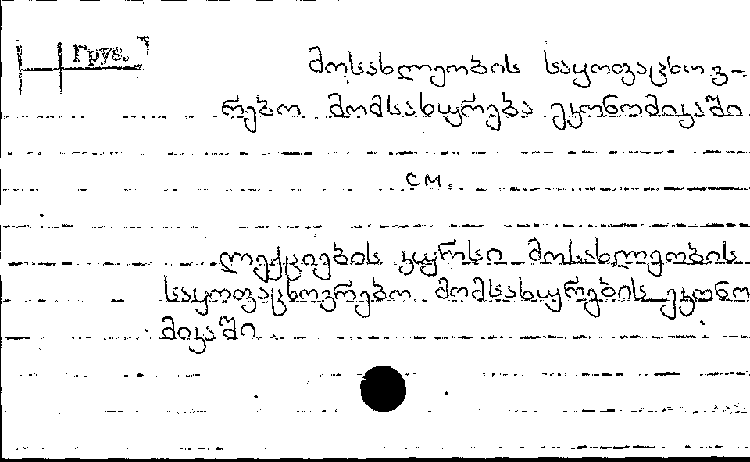 Груз.
მოსახლეობის საყოფაცხოვ-
რებო მომსახურება ეკონომიკაში
см.
ლექციების კურსი მოსახლეობის
საყოფაცხოვრებო მომსახურების ეკონო
მიკაში